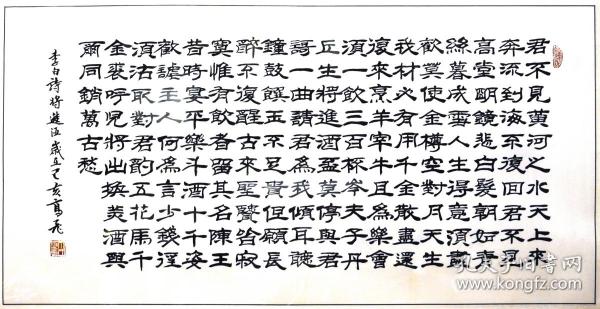 君不見黃河之水天上來
奔流到海不復回君不見
高堂明鏡悲白髮朝如青
絲暮成雪人生得意須盡
歡莫使金樽空對月天生
我材必有用千金散盡還
復來烹羊宰牛且為樂會
須一飲三百杯岑夫子丹
丘生將進酒盃莫停與君
哥一曲請君為我傾耳聽
鐘鼓饌玉不足貴但願長
醉不復醒古來聖賢皆寂
寞惟有飲者留其名陳王
昔時宴平樂斗酒十千恣
歡謔主人何為言少錢徑
須沽取對君酌五花馬千
金裘呼兒將出換美酒與
爾同銷萬古愁
李白詩將進酒歲在己亥
孔夫子旧书网
www.kongfz.com